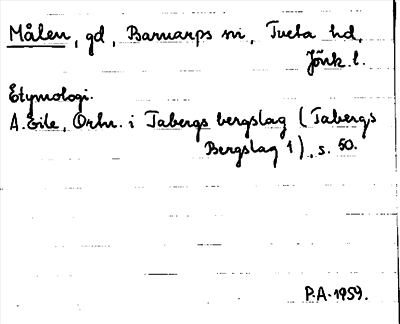 Målen, gd, Barnarps sn, Tveta hd,
Jönk. l.
Etymologi.
A. Eile, Ortn. i Tabergs bergslag (Tabergs
Bergslag 1), s. 50.
P.A. 1959.